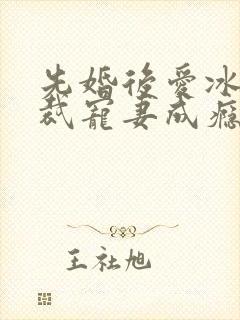 先婚後愛冰
裁寵妻成瘾
王社旭